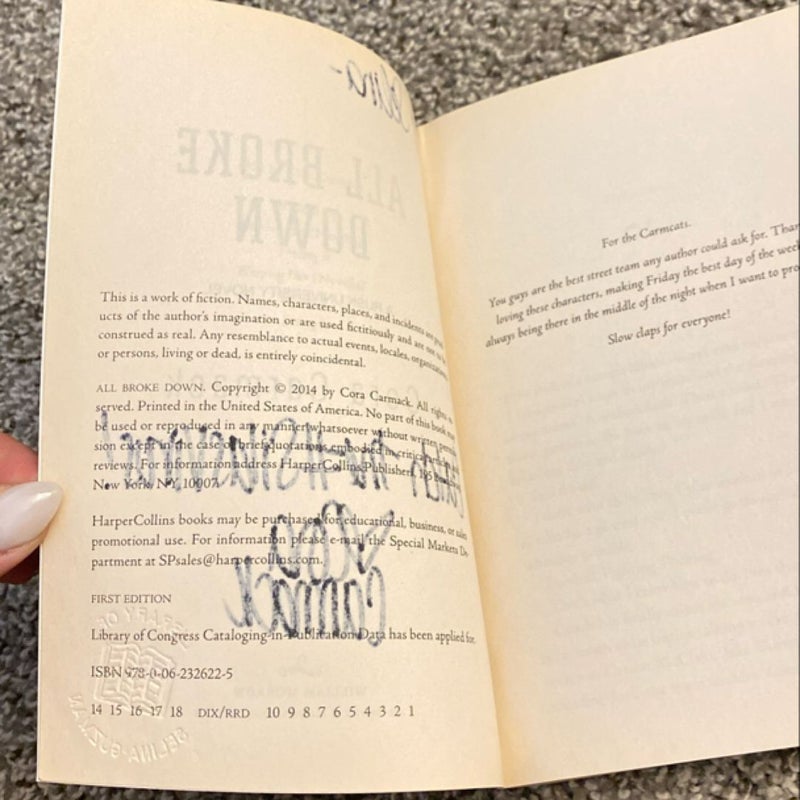 This is a work of fiction. Names, characters, places, and incidents are prod
ucts of the author's imagination or are used fictitiously and are not to be
construed as real. Any resemblance to actual events, locales, organizations,
or persons, living or dead, is entirely coincidental.
ALL BROKE DOWN. Copyright © 2014 by Cora Carmack. All rights re
served. Printed in the United States of America. No part of this book may
be used or reproduced in any manner whatsoever without written permis
sion except in the case of brief quotations embodied in critical articles and
reviews. For information address HarperCollins Publishers, 195 Broadway,
New York, NY, 10007.
HarperCollins books may be purchased for educational, business, or sales
promotional use. For information please e-mail the Special Markets De
partment at SPsales@harpercollins.com.
FIRST EDITION
Library of Congress Cataloging-in-Publication Data has been applied for.
ISBN 978-0-06-232622-5
14 15 16 17 18 DIX/RRD 10 9 8 7 6 5 4 3 2 1
For the Carmcats.
You guys are the best street team any author could ask for. Than
loving these characters, making Friday the best day of the week
always being there in the middle of the night when I want to pro
Slow claps for everyone!
ALL BROKE
DOWN
Cora
Carmack
LIBRARY OF
SELINA GUZMAN